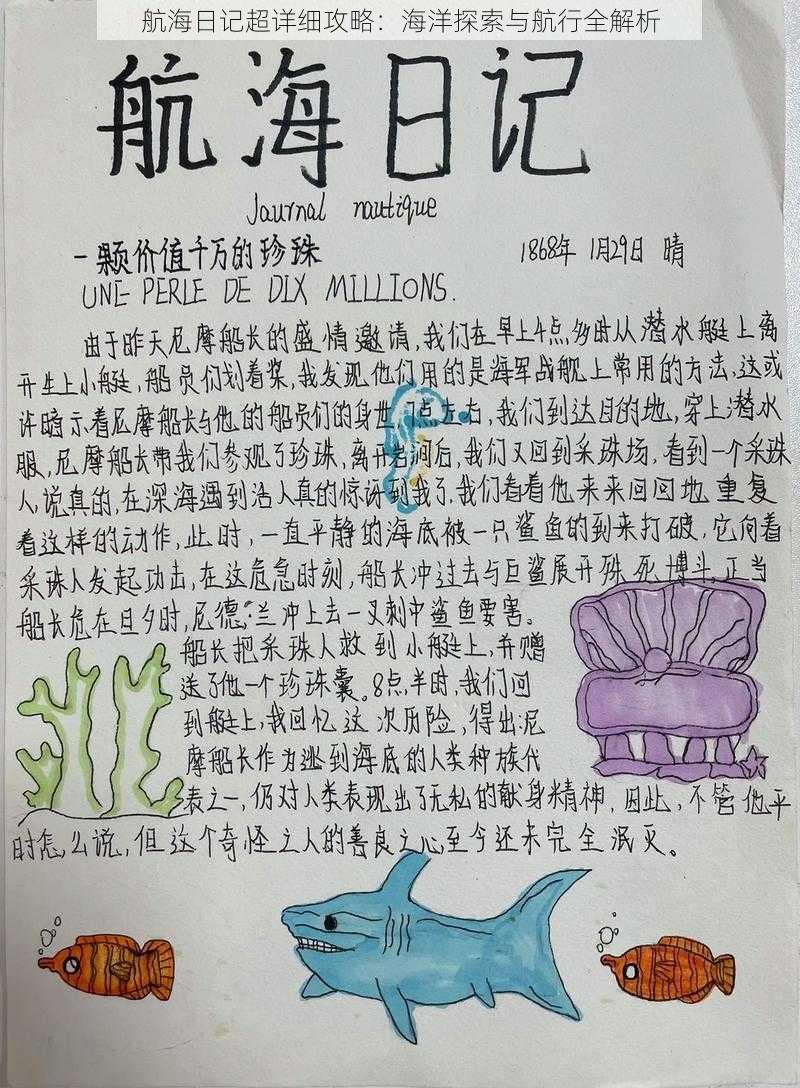 航海日记超详细攻略：海洋探索与航行全解析
航海日记
Journal nautique
一颗价值千万的珍珠 1868年 1月29日 晴
UNE PERLE DE DIX MILLIONS.
由于昨天尼摩船长的盛情邀请,我们在早上4点多时从潜水艇上离
开坐上小艇,船员们划着桨,我发现他们用的是海军战舰上常用的方法,这或
许暗示着尼摩船长与他的船员们的身世,门点左右,我们到达目的地,穿上潜水
服,尼摩船长带我们参观了珍珠,离开岩洞后,我们又回到采珠场,看到一个采珠
人,说真的,在深海遇到活人真的惊讶到我了,我们看着他来来回回地重复
着这样的动作,此时,一直平静的海底被一只鲨鱼的到来打破,它向着
采珠人发起功击,在这危急时刻,船长冲过去与巨鲨展开殊死博斗,正当
船长危在旦夕时,尼德·兰冲上去一叉刺中鲨鱼要害。
船长把采珠人救到小艇上,并赠
送了他一个珍珠囊。8点半时,我们回
到艇上,我回忆这次历险,得出:尼
摩船长作为逃到海底的人类种族代
表之一,仍对人类表现出了无私的献身精神,因此,不管他平
时怎么说,但这个奇怪之人的善良之心至今还未完全泯灭。